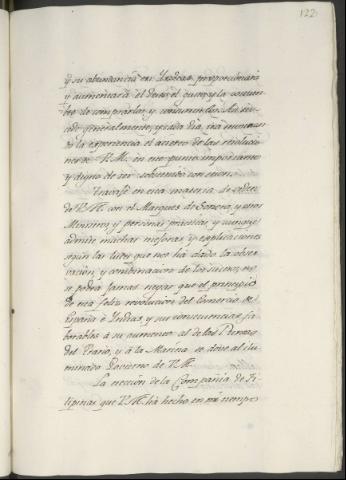 122
y su abundancia en Yndias, proporcionará
y aumentará el deseo, el gusto, y la costum-
bre de comprarlos y consumirlos. Asi su-
cede generalmente, y cada dia irá
la experiencia el acierto de las resolucio-
nes de V.M. en este punto importante
y digno de ser sobstenido con teson.
Trabajé en esta materia de orden
de V.M. con el Marques de Sonora, y otros
Ministros y personas practicas, y aunque
admite muchas mejoras y explicaciones
segun las luces que nos ha dado la obser-
vacion y combinacion de los sucesos, no
se podra jamas negar que el principio
de esta feliz revolucion del Comercio de
España é Yndias, y sus consecuencias fa-
borables á su aumento, al de las Rentas
del Erario, y á la Marina se debe al ilu-
minado Govierno de V.M.
La ereccion de la Compañia de Fi-
lipinas que V.M. ha hecho en mi tiempo